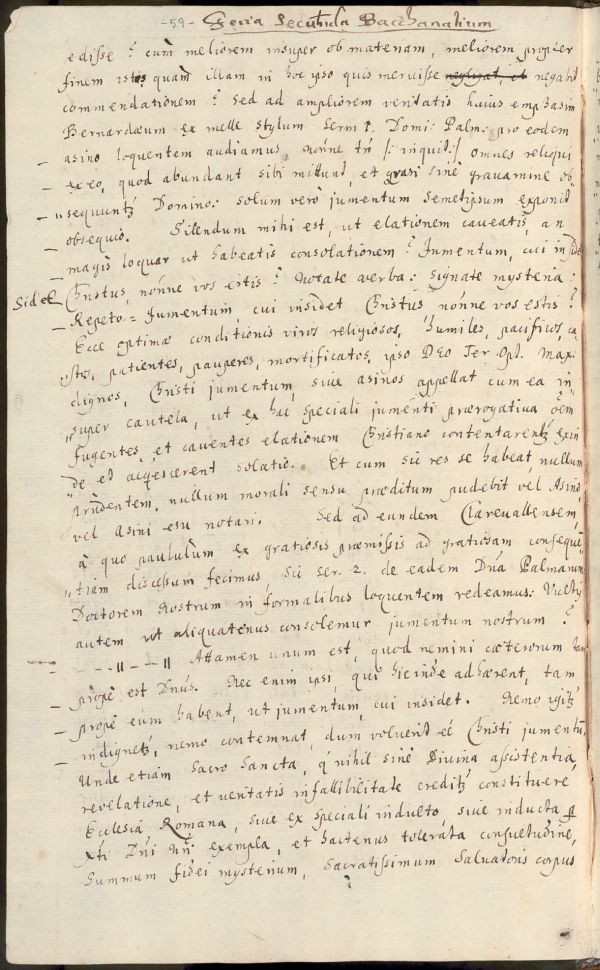 -59- Feria Secunda Bacchanalium
edisse? cum meliorem insuper ob materiam, meliorem propter
finem istos quam illam in hoc ipso quis meruisse negligat, et negabit
commendationem? Sed ad ampliorem veritatis huius emphasim
Bernardæum ex melle stylum Serm 1. Domi: Palm: pro eodem
asino loquentem audiamus, nonne tu /: inquit :/ omnes reliqui
ex eo, quod abundant sibi mittunt, et quasi sine gravamine ob-
sequuntz Domino: solum verò jumentum semetipsum exponit
obsequio. Silendum mihi est, ut elationem caveatis, an
magis loquar ut habeatis consolationem? Jumentum, cui insidet
Christus, nonne vos estis? Notate verba: signate mysteria:
Repeto = Jumentum, cui insidet Christus nonne vos estis?
Sid et
Ecce optimæ conditionis viros religiosos, humiles, pacificos, ca-
stos, patientes, pauperes, mortificatos, ipso DEO Ter Opt. Max:
dignos, Christi jumentum, sive asinos appellat cum ea in
super cautela, ut ex hac speciali jumenti prærogativa oem
fugentes, et caventes elationem Christiano contentarentz exin
de et acquiescerent solatio. Et cum sic res se habeat nullum
prudentem, nullum morali sensu præditum pudebit vel Asino,
vel Asini esu notari. Sed ad eundem Clarevallensem,
à quo paululum ex gratiosis præmissis ad gratiosam consequen
tiam discessum fecimus, sic ser. 2. de eadem Dna Palmarum
Doctorem Nostrum in formalibus loquentem redeamus:
autem ut aliquatenus consolemur jumentum nostrum?
- - - || - - || Attamen unum est, quod nemini cæterorum tam
propè est Dnus. Nec enim ipsi, qui hic inde adhærent, tam
propè eum habent, ut jumentum, cui insidet. Nemo igitz
indignetz, nemo contemnat, dum voluerit eé Christi jumentu,
Unde etiam Sacro Sancta, q nihil sinè Divina assistentia,
revelatione, et veritatis infallibilitate creditz constituere
Ecclesia Romana, sive ex speciali indulto, sive inducta p
xti Dni nri exempla, et hactenus tolerata consuetudine,
Summum fidei mysterium, Sacratissimum Salvatoris corpus